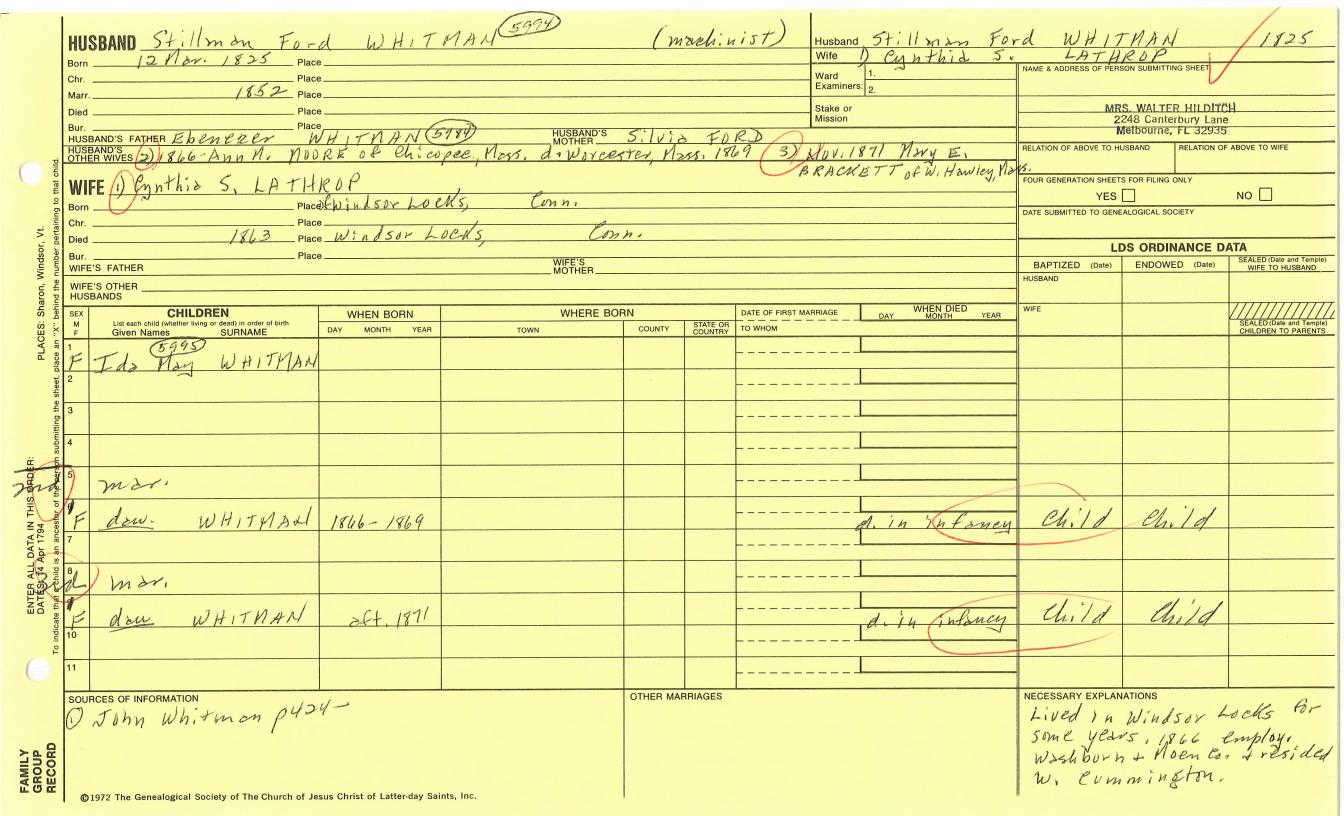 HUSBAND Stillman Ford WHITMAN 5994 (machinist)
Born 12 Mar. 1825 Place
Chr. Place
Marr. 1852 Place
Died Place
Bur. Place
HUSBAND'S FATHER Ebenezer WHITMAN 5984 HUSBAND'S MOTHER Silvia FORD
HUSBAND'S OTHER WIVES 2) 1866-Ann M. MOORE of Chicopee, Mass. d. Worcester, Mass. 1869 3) Nov. 1871 Mary E. BRACKETT of W. Hawley, Mass.
WIFE 1) Cynthia S. LATHROP
Born Place of Windsor Locks, Conn.
Chr. Place
Died 1863 Place Windsor Locks, Conn.
Bur. Place
WIFE'S FATHER WIFE'S MOTHER
WIFE'S OTHER HUSBANDS
Husband Stillman Ford WHITMAN 1825
Wife 1) Cynthia S. LATHROP
Ward Examiners: 1.
2.
Stake or Mission
NAME & ADDRESS OF PERSON SUBMITTING SHEET
MRS. WALTER HILDITCH
2248 Canterbury Lane
Melbourne, FL 32935
RELATION OF ABOVE TO HUSBAND RELATION OF ABOVE TO WIFE
FOUR GENERATION SHEETS FOR FILING ONLY
YES NO
DATE SUBMITTED TO GENEALOGICAL SOCIETY
LDS ORDINANCE DATA
BAPTIZED (Date) ENDOWED (Date) SEALED (Date and Temple) WIFE TO HUSBAND
HUSBAND
WIFE
SEALED (Date and Temple) CHILDREN TO PARENTS
SEX M F CHILDREN WHEN BORN WHERE BORN DATE OF FIRST MARRIAGE WHEN DIED
List each child (whether living or dead) in order of birth
Given Names SURNAME DAY MONTH YEAR TOWN COUNTY STATE OR COUNTRY TO WHOM DAY MONTH YEAR
1 F Ida May 5995 WHITMAN
2
3
4
5 2nd mar.
F dau. WHITMAN 1866-1869 d. in infancy Child Child
7
8 3rd mar.
F dau WHITMAN aft. 1871 d. in infancy Child Child
10
11
SOURCES OF INFORMATION
1) John Whitman p424-
OTHER MARRIAGES
NECESSARY EXPLANATIONS
Lived in Windsor Locks for
some years. 1866 employ.
Washburn + Moen Co. + resided
W. Cummington.
©1972 The Genealogical Society of The Church of Jesus Christ of Latter-day Saints, Inc.
FAMILY
GROUP
RECORD
ENTER ALL DATA IN THIS ORDER:
DATES: 14 Apr 1794 PLACES: Sharon, Windsor, Vt.
To indicate that a child is an ancestor of the person submitting the sheet, place an "X" behind the number pertaining to that child.